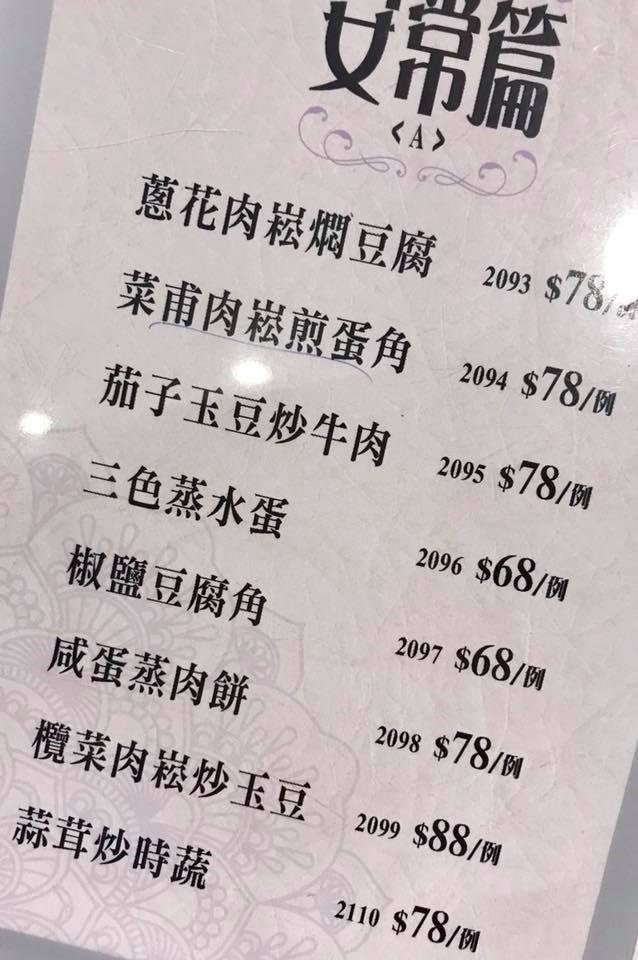 常篇
<A>
蔥花肉崧燜豆腐 2093 $78/例
菜甫肉崧煎蛋角 2094 $78/例
茄子玉豆炒牛肉 2095 $78/例
三色蒸水蛋 2096 $68/例
椒鹽豆腐角 2097 $68/例
咸蛋蒸肉餅 2098 $78/例
欖菜肉崧炒玉豆 2099 $88/例
蒜茸炒時蔬 2110 $78/例